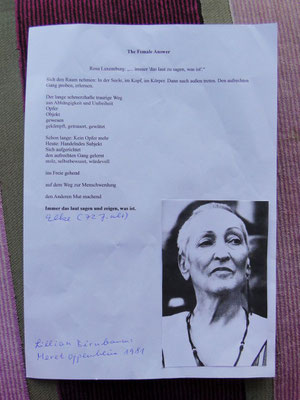 The Female Answer
Rosa Luxemburg: „... immer das laut zu sagen, was ist“
Sich den Raum nehmen: In der Seele, im Kopf, im Körper. Dann nach außen treten. Den aufrechten
Gang proben, erlernen.
Der lange schmerzhafte traurige Weg
aus Abhängigkeit und Unfreiheit
Opfer
Objekt
gewesen
gekämpft, getrauert, gewütet
Schon lange: Kein Opfer mehr
Heute: Handelndes Subjekt
Sich aufgerichtet
den aufrechten Gang gelernt
stolz, selbstbewusst, würdevoll
ins Freie gehend
auf dem Weg zur Menschwerdung
den Anderen Mut machend
Immer das laut sagen und zeigen, was ist.
Elke (72 J. alt)
Lillian Birnbaum:
Meret Oppenheim 1981